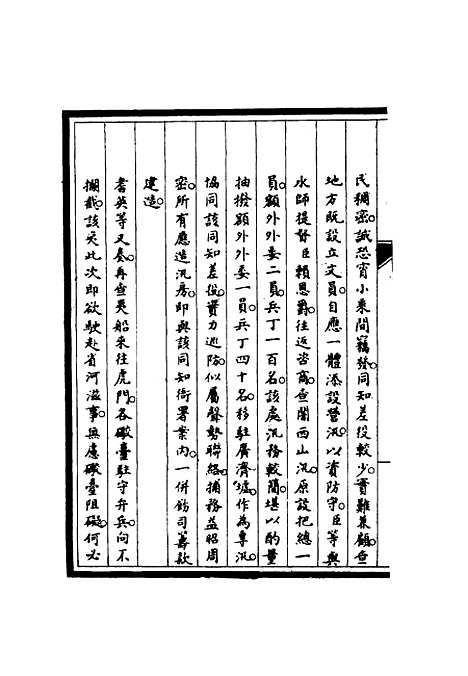 民稠密。誠恐宵小乘間竊發。同知差役較少。實難兼顧。查
地方既設立文員。自應一體添設營汛。以資防守。臣等與
水師提督臣賴恩爵往返咨商。查閘西山汛。原設把總一
員。額外外委二員。兵丁一百名。該處汛務較簡。堪以酌量
抽撥額外外委一員。兵丁四十名。移駐廣濟墟。作為專汛。
協同該同知差役。實力巡防。似屬聲勢聯絡。捕務益昭周
密。所有應造汛房。即與該同知衙署案內。一併飭司籌款
建造。
耆英等又奏。再查夷船來往虎門。各礮臺駐守弁兵。向不
攔截。該夷此次即欲駛赴省河滋事。無慮礮臺阻礙。何必